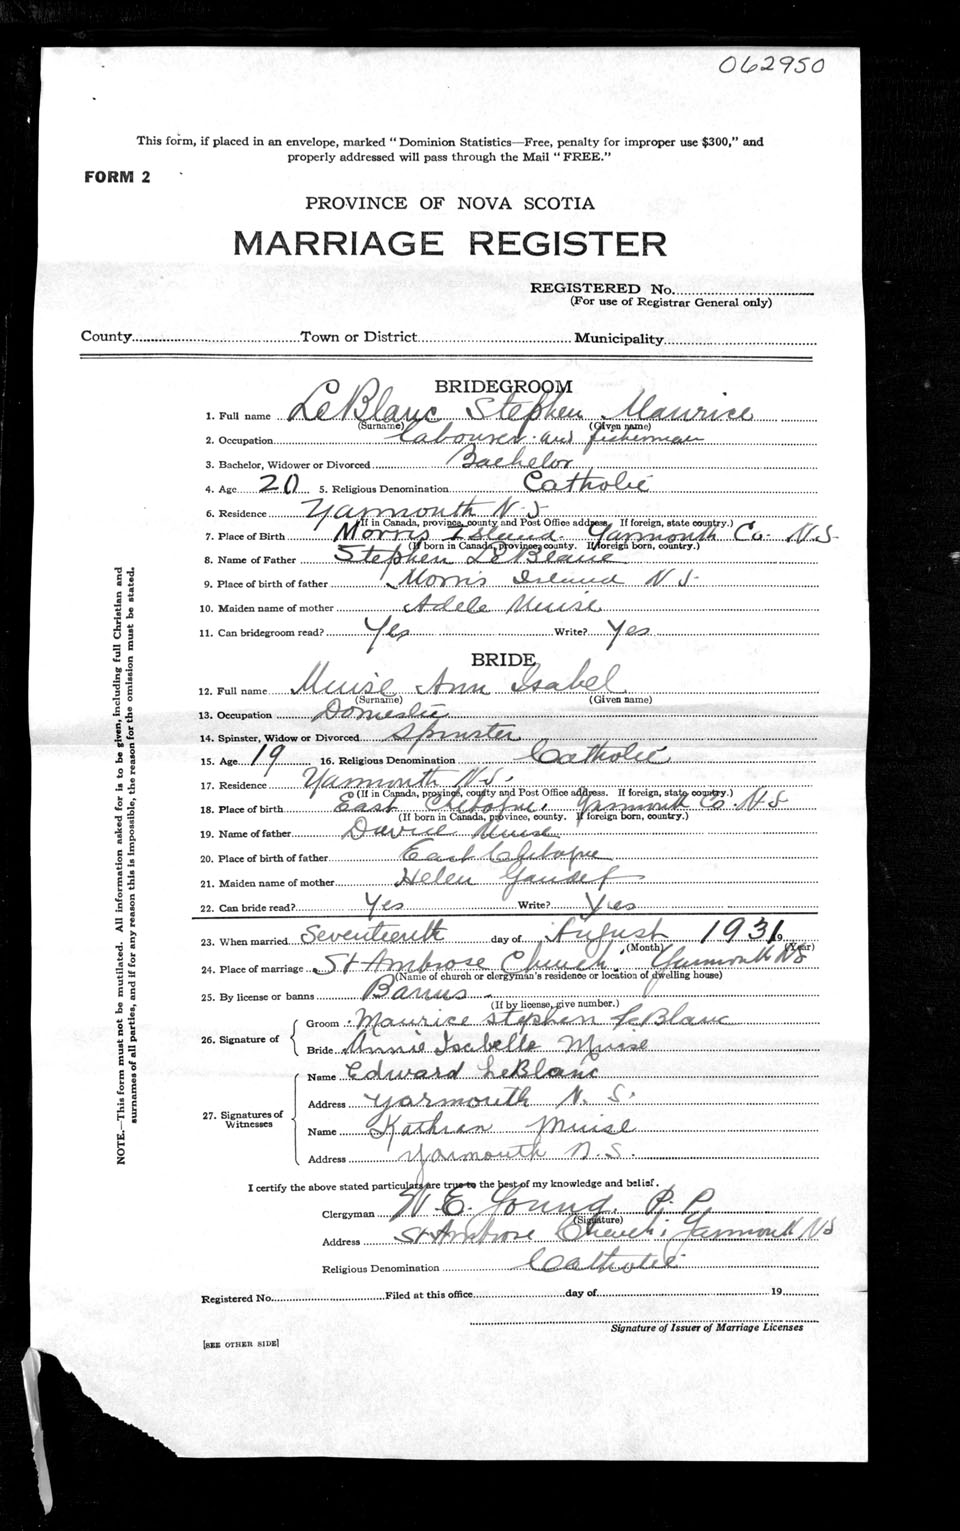 062950
This form, if placed in an envelope, marked "Dominion Statistics—Free, penalty for improper use $300," and
properly addressed will pass through the Mail "FREE."
FORM 2
PROVINCE OF NOVA SCOTIA
MARRIAGE REGISTER
REGISTERED No.
(For use of Registrar General only)
County Town or District Municipality
BRIDEGROOM
1. Full name LeBlanc Stephen Maurice
(Surname) (Given name)
2. Occupation labourer and fisherman
3. Bachelor, Widower or Divorced Bachelor
4. Age 20 5. Religious Denomination Catholic
6. Residence Yarmouth N.S
(If in Canada, province, county and Post Office address. If foreign, state country.)
7. Place of Birth Morris Island Yarmouth Co. N.S.
(If born in Canada, province, county. If foreign born, country.)
8. Name of Father Stephen LeBlanc
9. Place of birth of father Morris Island N S
10. Maiden name of mother Adele Muise
11. Can bridegroom read? Yes Write? Yes
BRIDE
12. Full name Muise Ann Isabel
(Surname) (Given name)
13. Occupation Domestic
14. Spinster, Widow or Divorced Spinster
15. Age 19 16. Religious Denomination Catholic
17. Residence Yarmouth N.S.
(If in Canada, province, county and Post Office address. If foreign, state country.)
18. Place of birth East Chebogue, Yarmouth Co. N.S
(If born in Canada, province, county. If foreign born, country.)
19. Name of father David Muise
20. Place of birth of father East Chebogue
21. Maiden name of mother Helen Gaudet
22. Can bride read? Yes Write? Yes
23. When married Seventeenth day of August 1931
(Month) (Year)
24. Place of marriage St Ambrose Church, Yarmouth NS
(Name of church or clergyman's residence or location of dwelling house)
25. By license or banns Banns
(If by license, give number.)
26. Signature of
Groom Maurice Stephen LeBlanc
Bride Annie Isabelle Muise
27. Signatures of Witnesses
Name Edward LeBlanc
Address Yarmouth N. S.
Name Kathran Muise
Address Yarmouth N.S.
I certify the above stated particulars are true to the best of my knowledge and belief.
Clergyman W. E. Young, P. P.
(Signature)
Address St Ambrose Church, Yarmouth NS
Religious Denomination Catholic
Registered No. Filed at this office day of 19
Signature of Issuer of Marriage Licenses
[SEE OTHER SIDE]
NOTE.—This form must not be mutilated. All information asked for is to be given, including full Christian and
surnames of all parties, and if for any reason this is impossible, the reason for the omission must be stated.